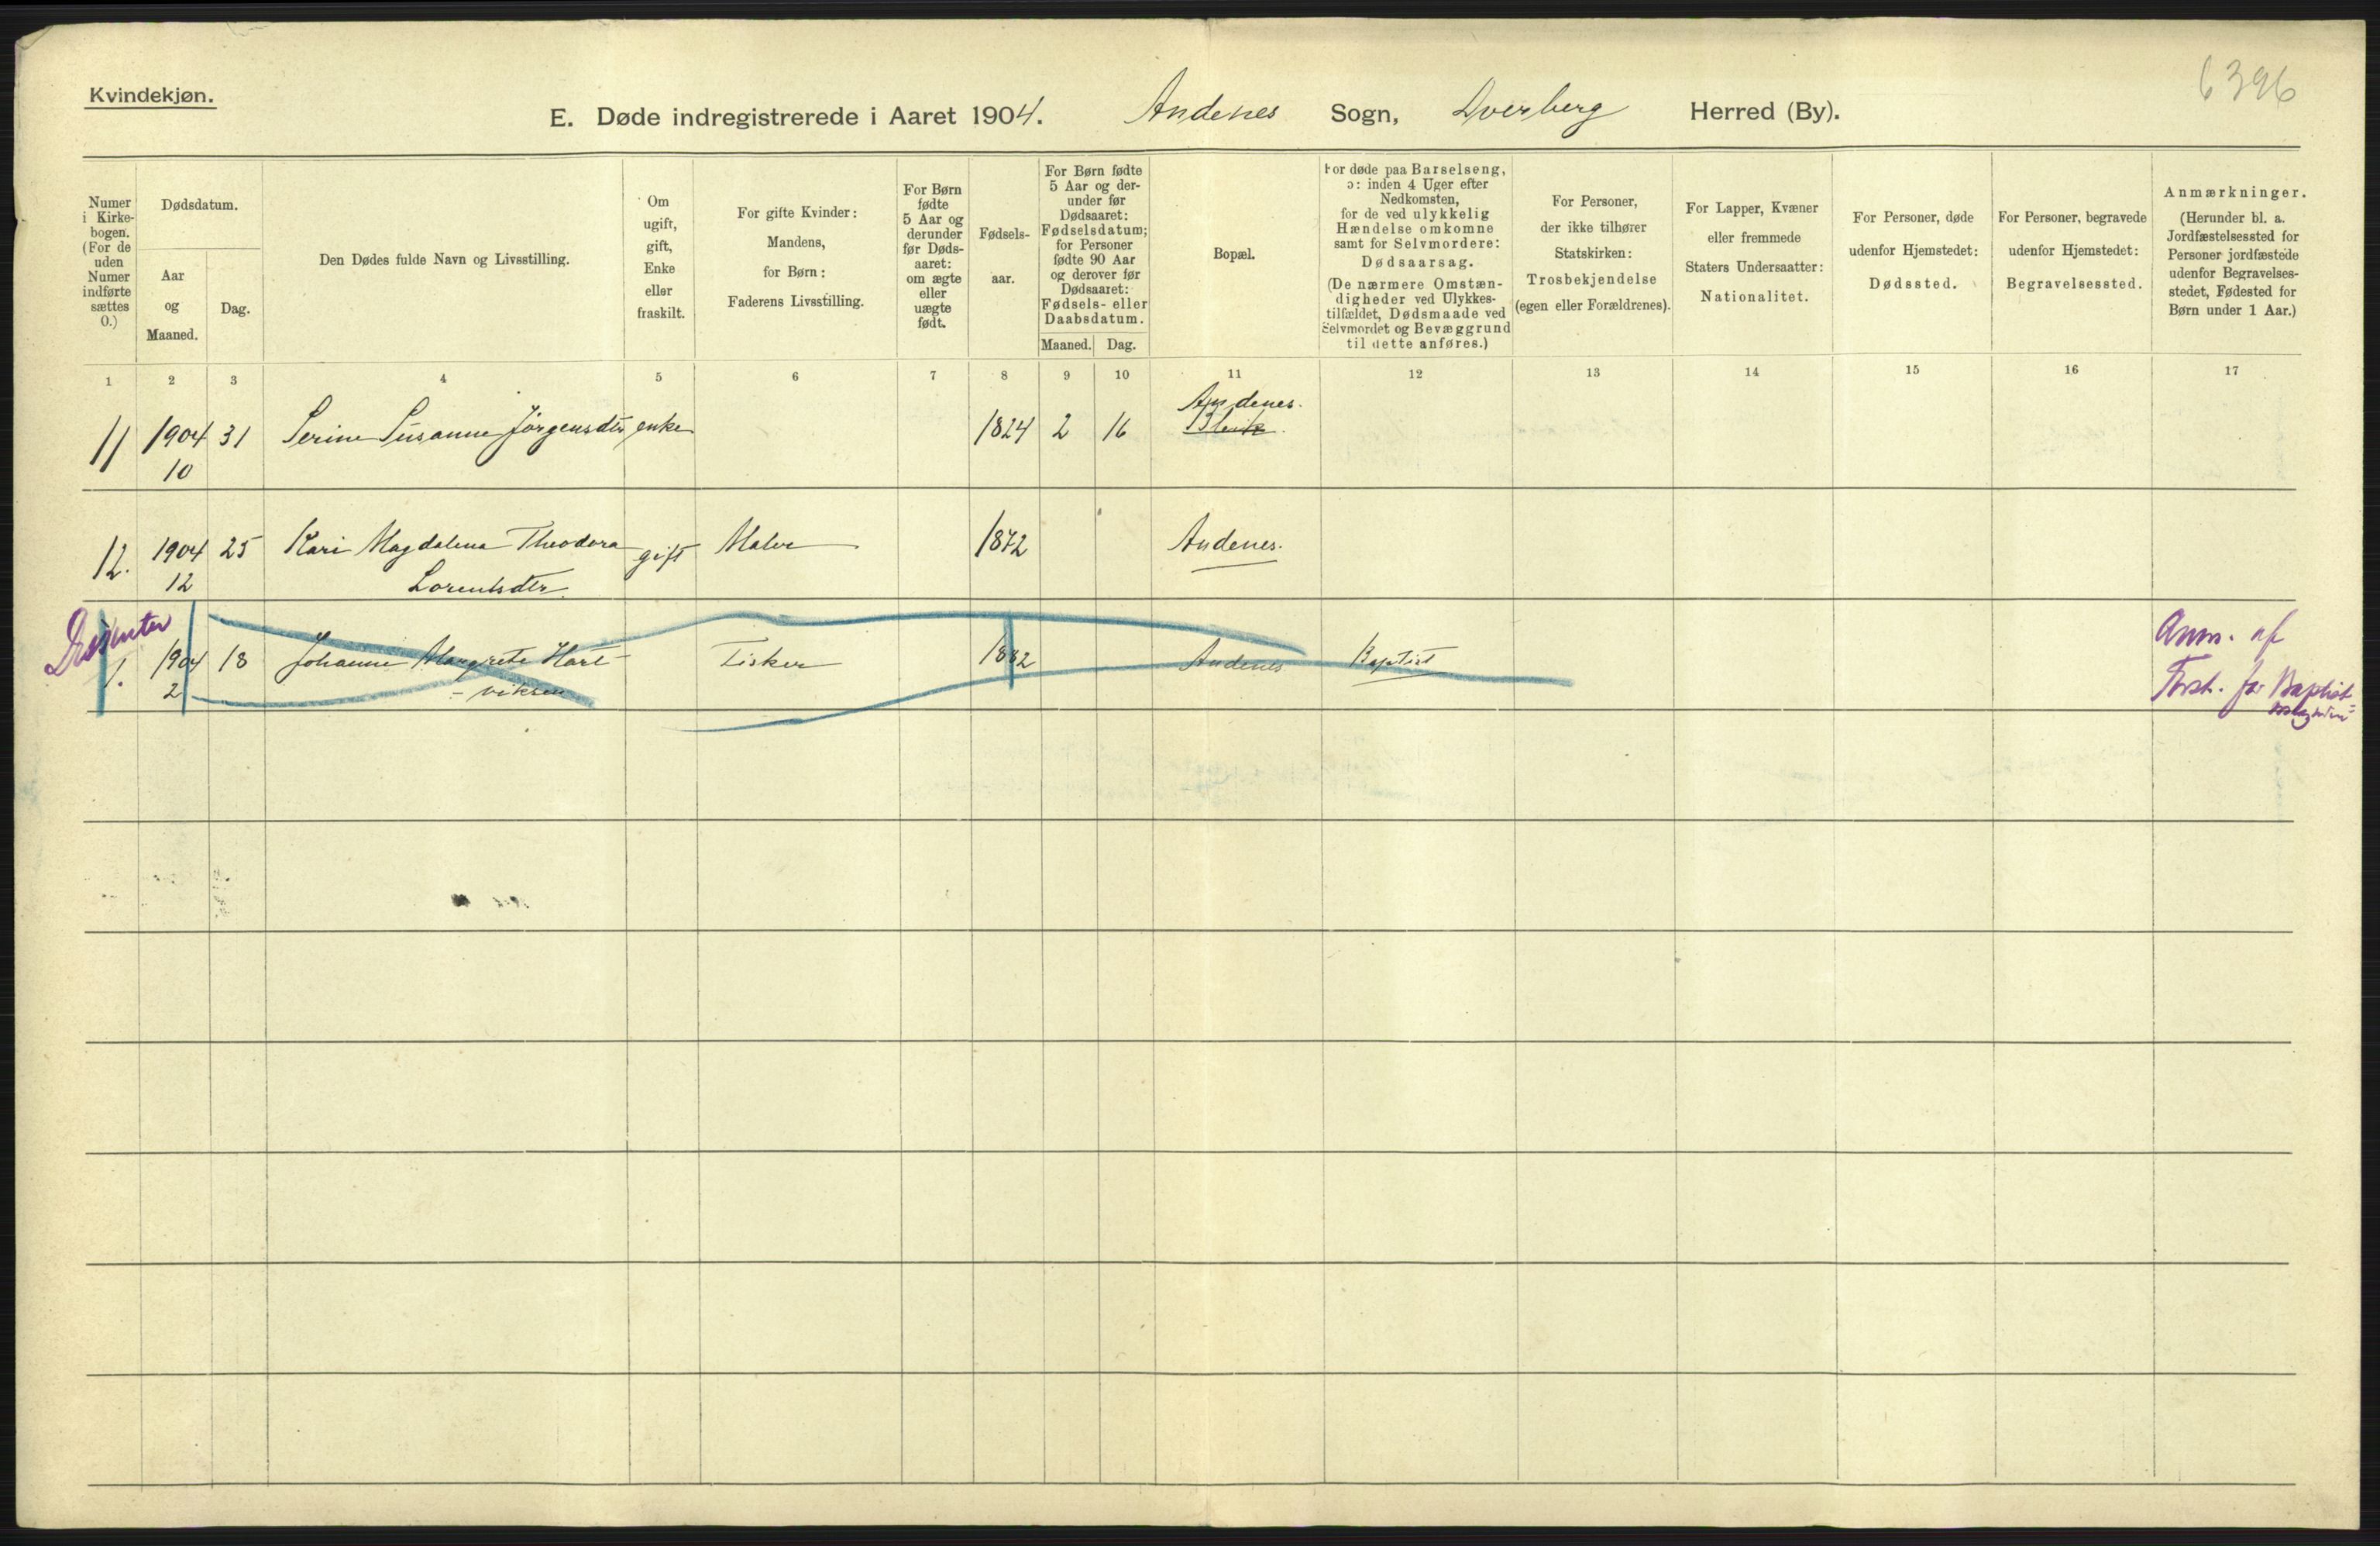 Kvindekjøn.
6396
E. Døde indregistrerede i Aaret 1904. Andenes Sogn, Dverberg Herred (By).
Numer
i Kirke-
bogen.
(For de
uden
Numer
indførte
sættes
0.)
Dødsdatum.
Aar
og
Maaned.
Dag.
Den Dødes fulde Navn og Livsstilling.
Om
ugift,
gift,
Enke
eller
fraskilt.
For gifte Kvinder:
Mandens,
for Børn:
Faderens Livsstilling.
For Børn
fødte
5 Aar og
derunder
før Døds-
aaret:
om ægte
eller
uægte
født.
Fødsels-
aar.
For Børn fødte
5 Aar og der-
under før
Dødsaaret:
Fødselsdatum;
for Personer
fødte 90 Aar
og derover før
Dødsaaret:
Fødsels- eller
Daabsdatum.
Maaned. Dag.
Bopæl.
For døde paa Barselseng,
ɔ: inden 4 Uger efter
Nedkomsten,
for de ved ulykkelig
Hændelse omkomne
samt for Selvmordere:
Dødsaarsag.
(De nærmere Omstæn-
digheder ved Ulykkes-
tilfældet, Dødsmaade ved
Selvmordet og Bevæggrund
til dette anføres.)
For Personer,
der ikke tilhører
Statskirken:
Trosbekjendelse
(egen eller Forældrenes).
For Lapper, Kvæner
eller fremmede
Staters Undersaatter:
Nationalitet.
For Personer, døde
udenfor Hjemstedet:
Dødssted.
For Personer, begravede
udenfor Hjemstedet:
Begravelsessted.
Anmærkninger.
(Herunder bl. a.
Jordfæstelsessted for
Personer jordfæstede
udenfor Begravelses-
stedet, Fødested for
Børn under 1 Aar.)
1 2 3 4 5 6 7 8 9 10 11 12 13 14 15 16 17
Andenes.
11 1904 31 Serine Susanne Jörgensdtr enke 1824 2 16 Bleik.
10
12. 1904 25 Kari Magdalena Theodora gift Maler 1872 Andenes.
12 Lorentsdtr.
Dissenter
1. 1904 18 Johanne Margrete Hart- Fisker 1882 Andenes Baptist
2 - viksen
Anm. af
Forst. for Baptist